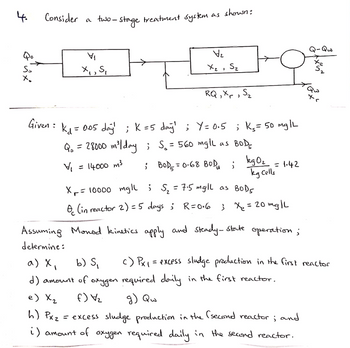 4. Consider a two-stage treatment system as shown:
Q₀
S₀
X₀
V₁
X₁, S₁
V₂
X₂, S₂
Q-Qw
Xe
S₂
RQ, Xr, S₂
Qw
Xr
Given: kd = 0.05 day⁻¹ ; K = 5 day⁻¹ ; Y = 0.5 ; Ks = 50 mg/L
Q₀ = 28000 m³/day ; S₀ = 560 mg/L as BOD₅
V₁ = 14000 m³ ; BOD₅ = 0.68 BODu ; kg O₂ / kg cells = 1.42
Xr = 10000 mg/L ; S₂ = 7.5 mg/L as BOD₅
θc (in reactor 2) = 5 days ; R = 0.6 ; Xe = 20 mg/L
Assuming Monod kinetics apply and steady-state operation ;
determine:
a) X₁ b) S₁ c) Px₁ = excess sludge production in the first reactor
d) amount of oxygen required daily in the first reactor.
e) X₂ f) V₂ g) Qw
h) Px₂ = excess sludge production in the second reactor ; and
i) amount of oxygen required daily in the second reactor.